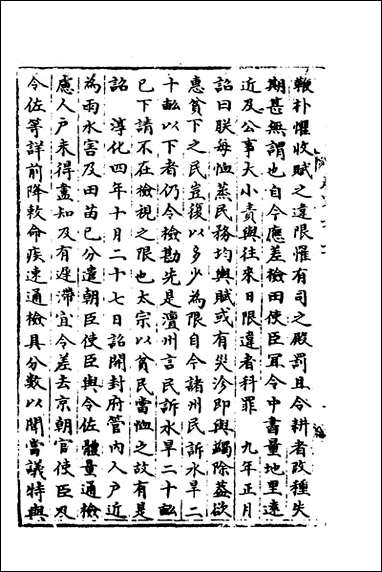 鞭朴懼收賦之違限懼有司之殿罰且令耕者改種失
期甚無謂也自今應差檢田使臣冝令中書量地里遠
近及公事大小責與往來日限違者科罪　九年正月
詔曰朕每恤蒸民務均輿賦或有災沴即與蠲除蓋欲
惠貧下之民豈復以多少為限自今諸州民訴水旱二
十畝以下者仍令檢勘先是澶州言民訴水旱二十畝
已下請不在檢視之限也太宗以貧民當恤之故有是
詔　淳化四年十月二十七日詔開封府管内人戶近
為雨水害及田苗已分遣朝臣使臣與令佐體量通檢
慮人户未得盡知及有遲滯宜令差去京朝官使臣及
令佐等詳前降敕命疾速通檢具分數以聞當議特與